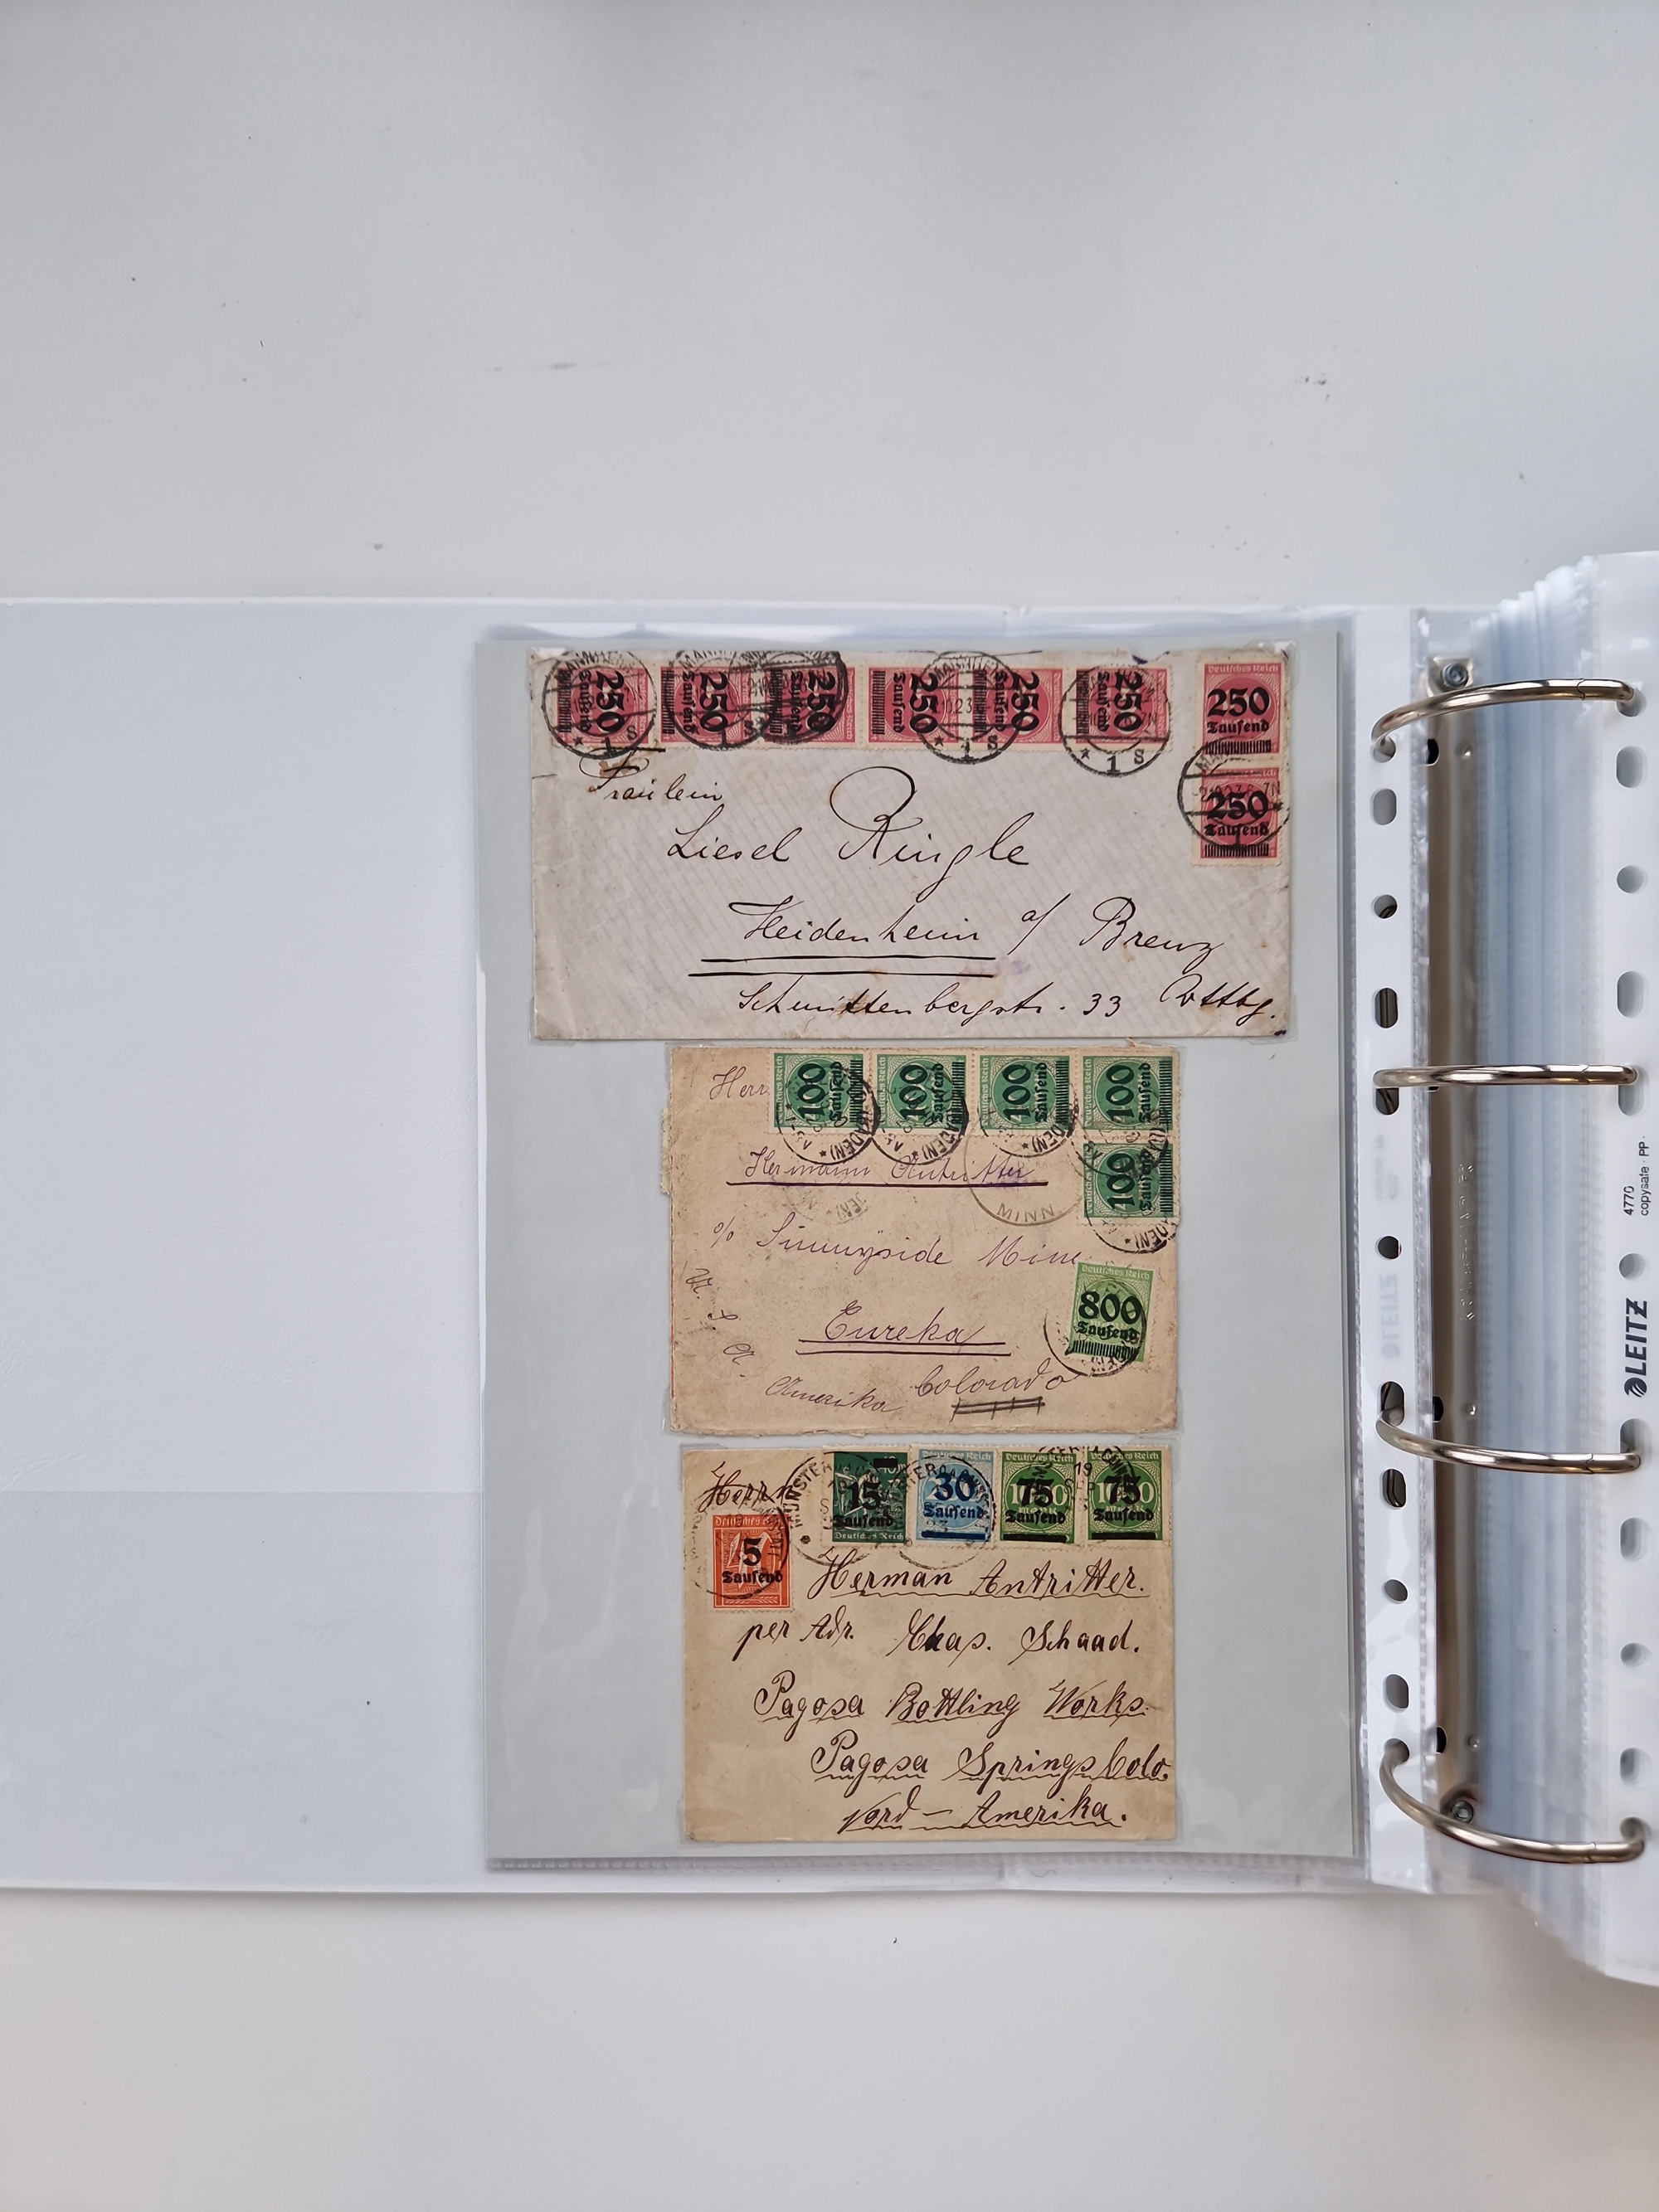 250
Tausend
250
Tausend
250
Tausend
250
Tausend
250
Tausend
250
Tausend
Deutsches Reich
250
Tausend
250
Tausend
MANNHEIM
1 S
1 S
1 S
* 1 S
Fräulein
Liesel Ringle
Heidenheim a/ Brenz
Schmittenbergstr. 33 Wttbg.
Deutsches Reich
100
Tausend
Deutsches Reich
100
Tausend
Deutsches Reich
100
Tausend
Deutsches Reich
100
Tausend
100
Tausend
(BADEN) *
MINN.
Herrn
Hermann Antritter
c/o Sunnyside Mine
Eureka
Colorado
Amerika
U. S. A.
Deutsches Reich
800
Tausend
Herrn
Deutsches Reich
5
Tausend
15
Tausend
Deutsches Reich
Deutsches Reich
30
Tausend
Deutsches Reich
75
Tausend
Deutsches Reich
75
Tausend
MÜNSTER
19
SEP
Herman Antritter.
per Adr. Chas. Schaad.
Pagosa Bottling Works.
Pagosa Springs Colo.
Nord - Amerika.
4770
copysafe · PP ·
LEITZ
LEITZ